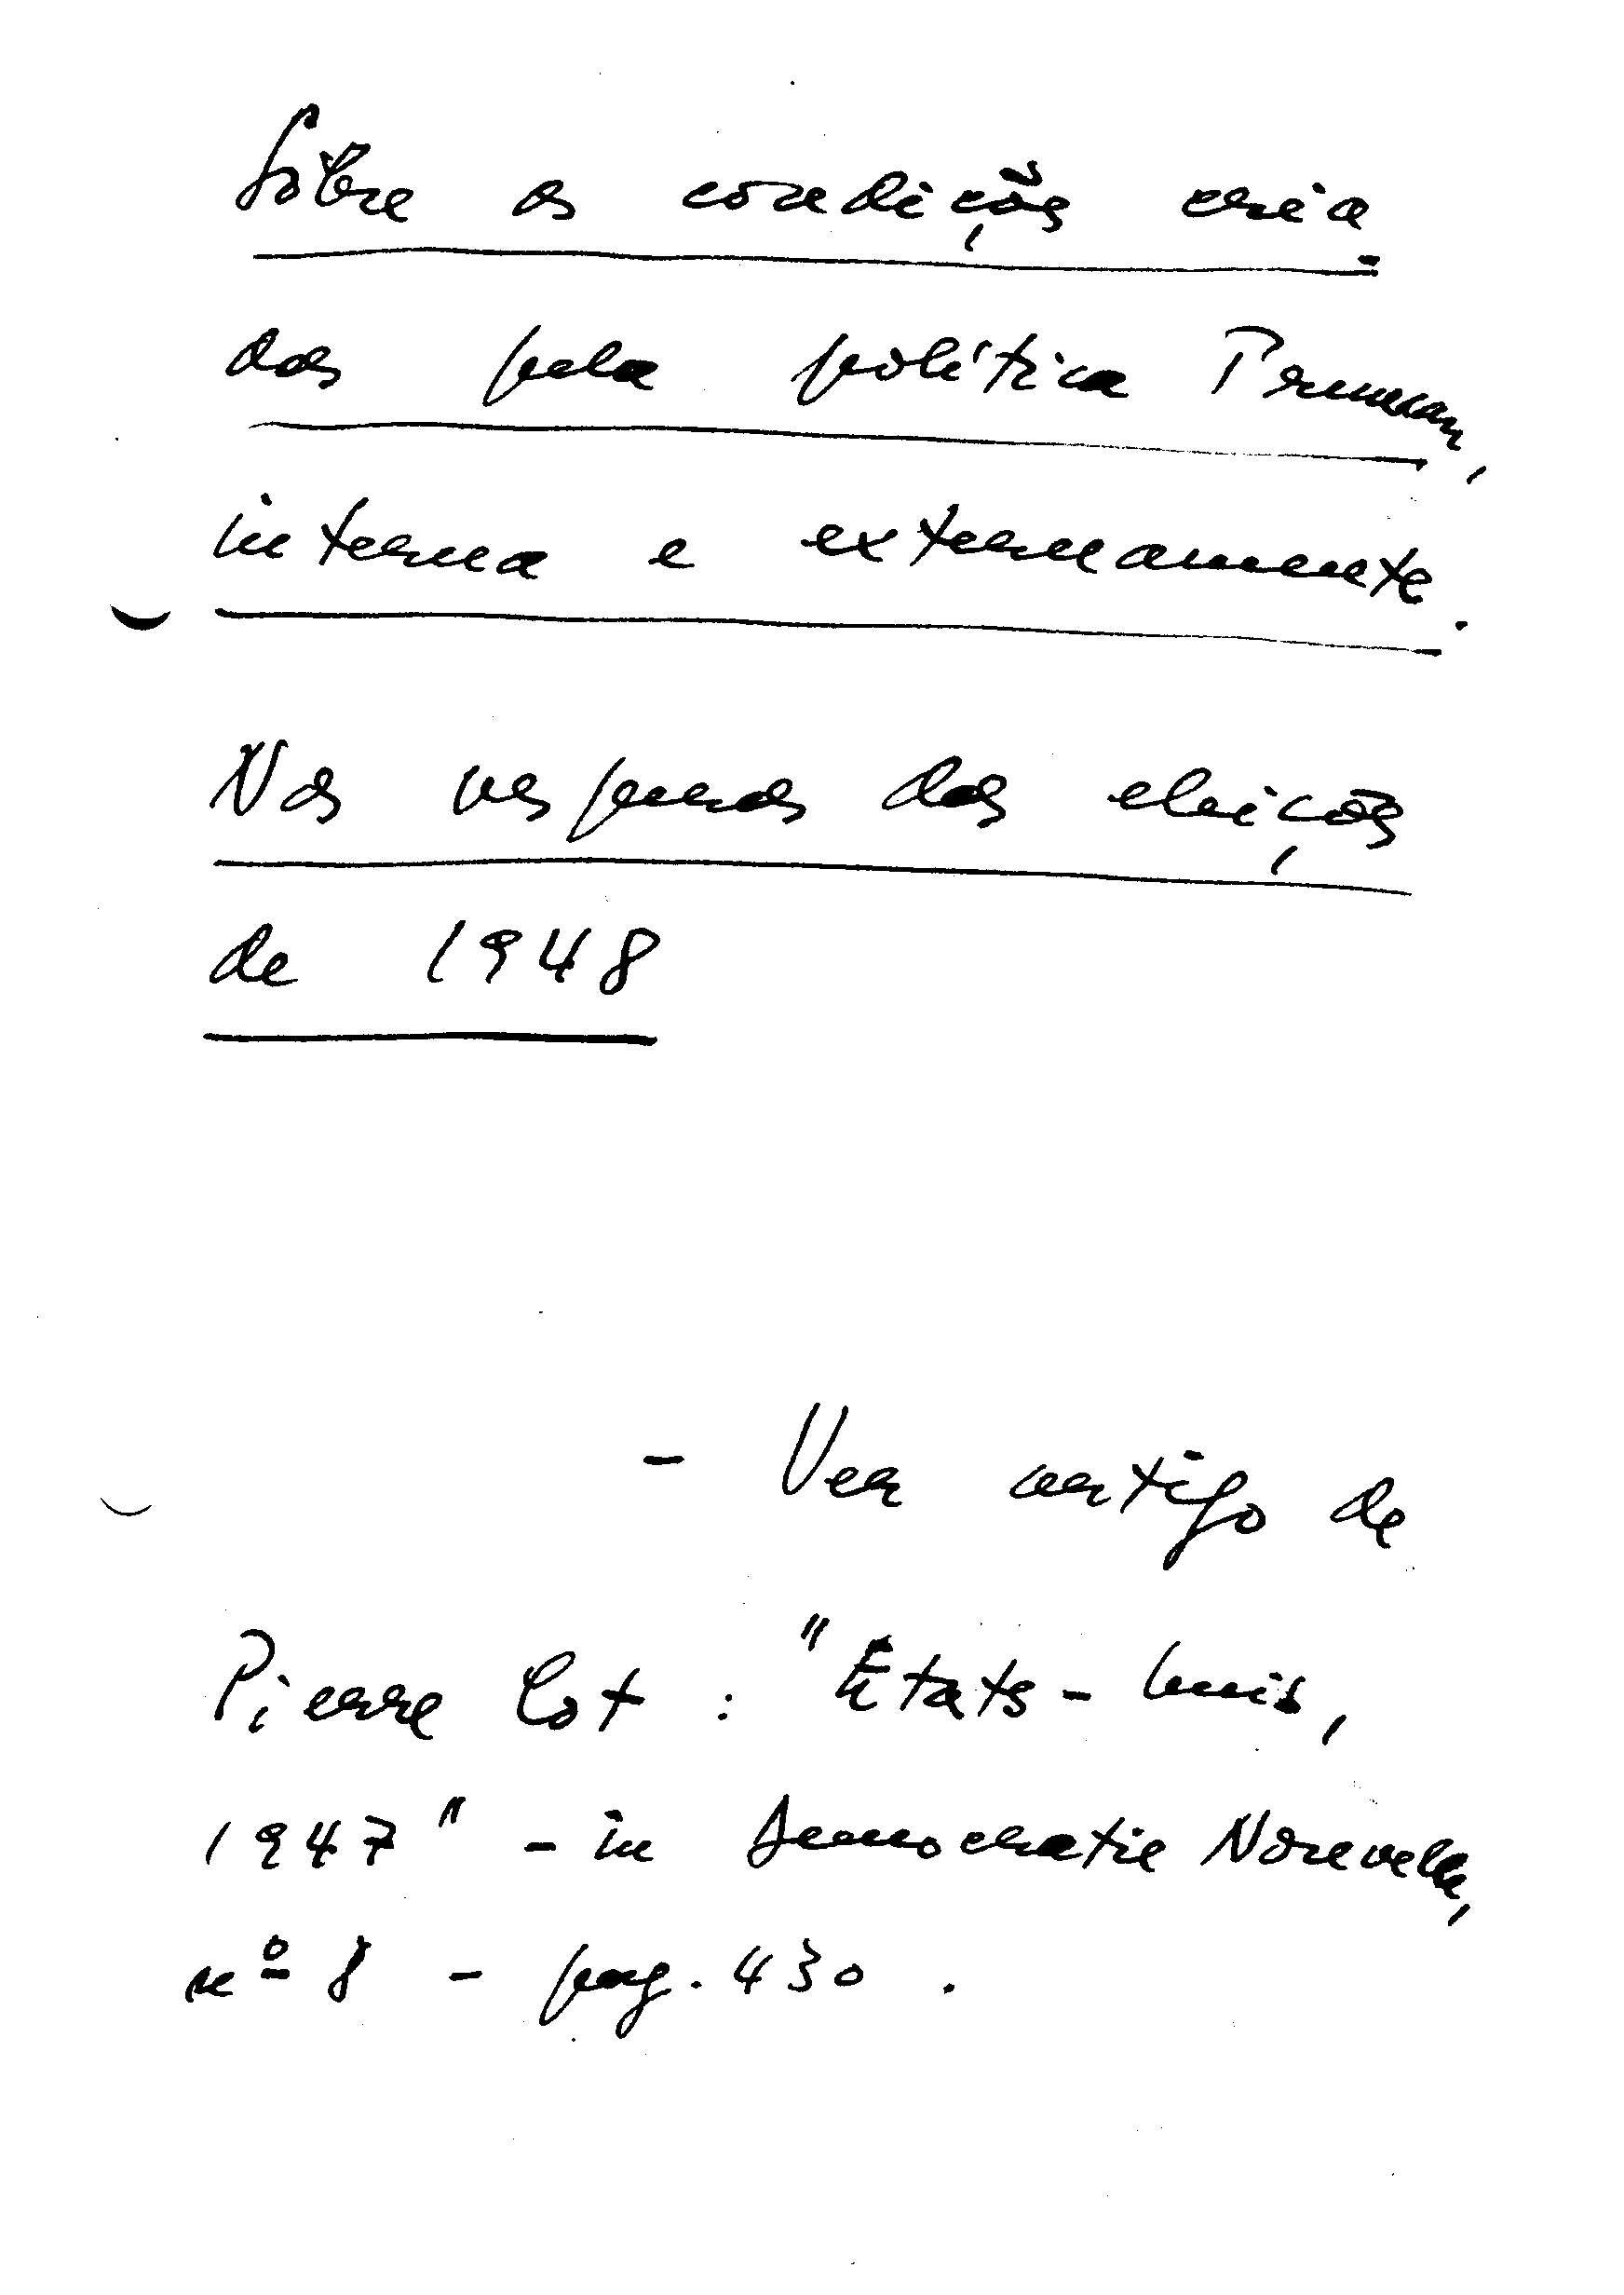 Sôbre as condições cria-
das pela política Truman,
interna e externamente.
Nas vesperas das eleições
de 1948
- Ver artigo de
Pierre Cot : "États-Unis,
1947" - in Democratie Nouvelle,
nº 8 - pag. 430 .